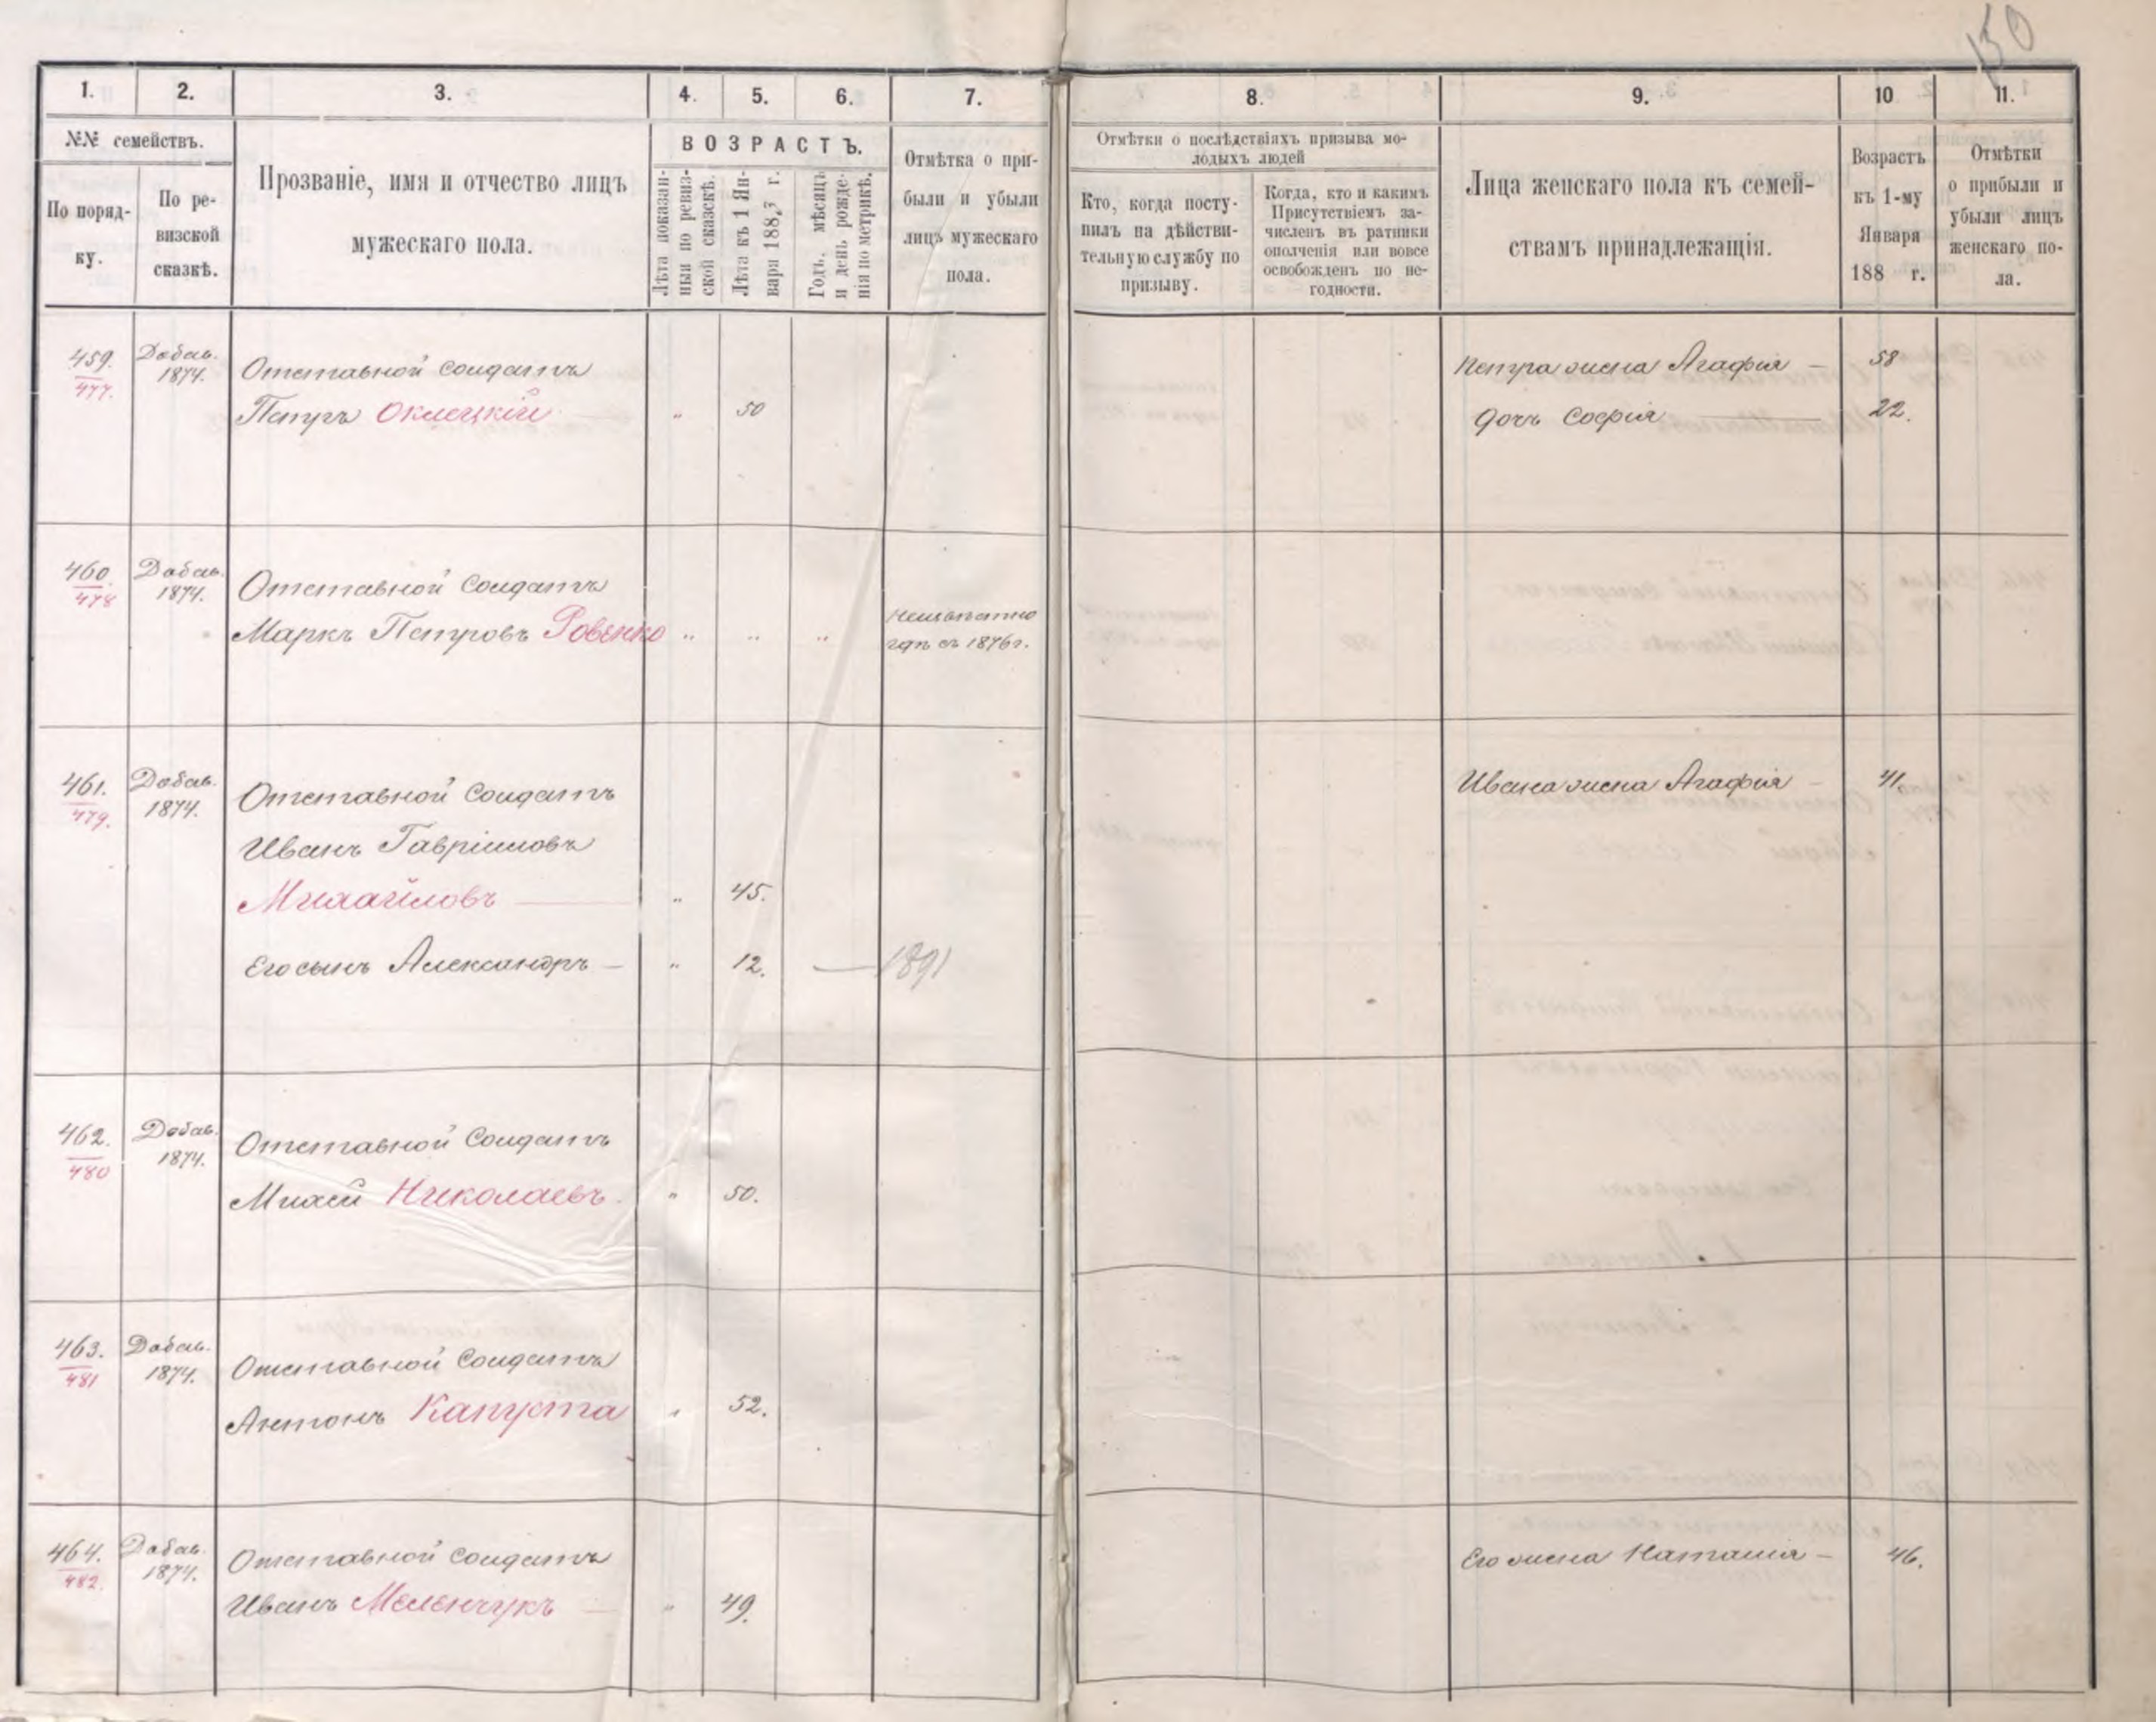 150
1.
2.
3.
4.
5.
6.
7.
8.
9.
10
11.
№№ семействъ.
По поряд-
ку.
По ре-
визской
сказкѣ.
Прозваніе, имя и отчество лицъ
мужескаго пола.
ВОЗРАСТЪ.
Лѣта показан-
ныя по ревиз-
ской сказкѣ.
Лѣта къ 1 Ян-
варя 1883 г.
Годъ, мѣсяцъ
и день рожде-
нія по метрикѣ.
Отмѣтка о при-
были и убыли
лицъ мужескаго
пола.
Отмѣтки о послѣдствіяхъ призыва мо-
лодыхъ людей
Кто, когда посту-
пилъ на дѣйстви-
тельную службу по
призыву.
Когда, кто и какимъ
Присутствіемъ за-
численъ въ ратники
ополченія или вовсе
освобожденъ по не-
годности.
Лица женскаго пола къ семей-
ствамъ принадлежащія.
Возрастъ
къ 1-му
Января
188 г.
Отмѣтки
о прибыли и
убыли лицъ
женскаго по-
ла.
459. Добав. Отставной Солдатъ Петра жена Агафія — 58
477. 1874. Петръ Окнецкій " 50 дочь Софія — 22.
460. Добав. Отставной Солдатъ
478 1874. Маркъ Петровъ Ровенко " " " неизвѣстно
гдѣ съ 1876 г.
461. Добав. Отставной Солдатъ Ивана жена Агафія — 41.
479. 1874. Иванъ Гавріиловъ
Михайловъ — " 45.
Его сынъ Александръ — " 12. — 1891
462. Добав. Отставной Солдатъ
480 1874. Михей Николаевъ. " 50.
463. Добав. Отставной Солдатъ
481 1874. Антонъ Капуста " 52.
464. Добав. Отставной Солдатъ Его жена Наталія — 46.
482. 1874. Иванъ Меленчукъ — " 49.